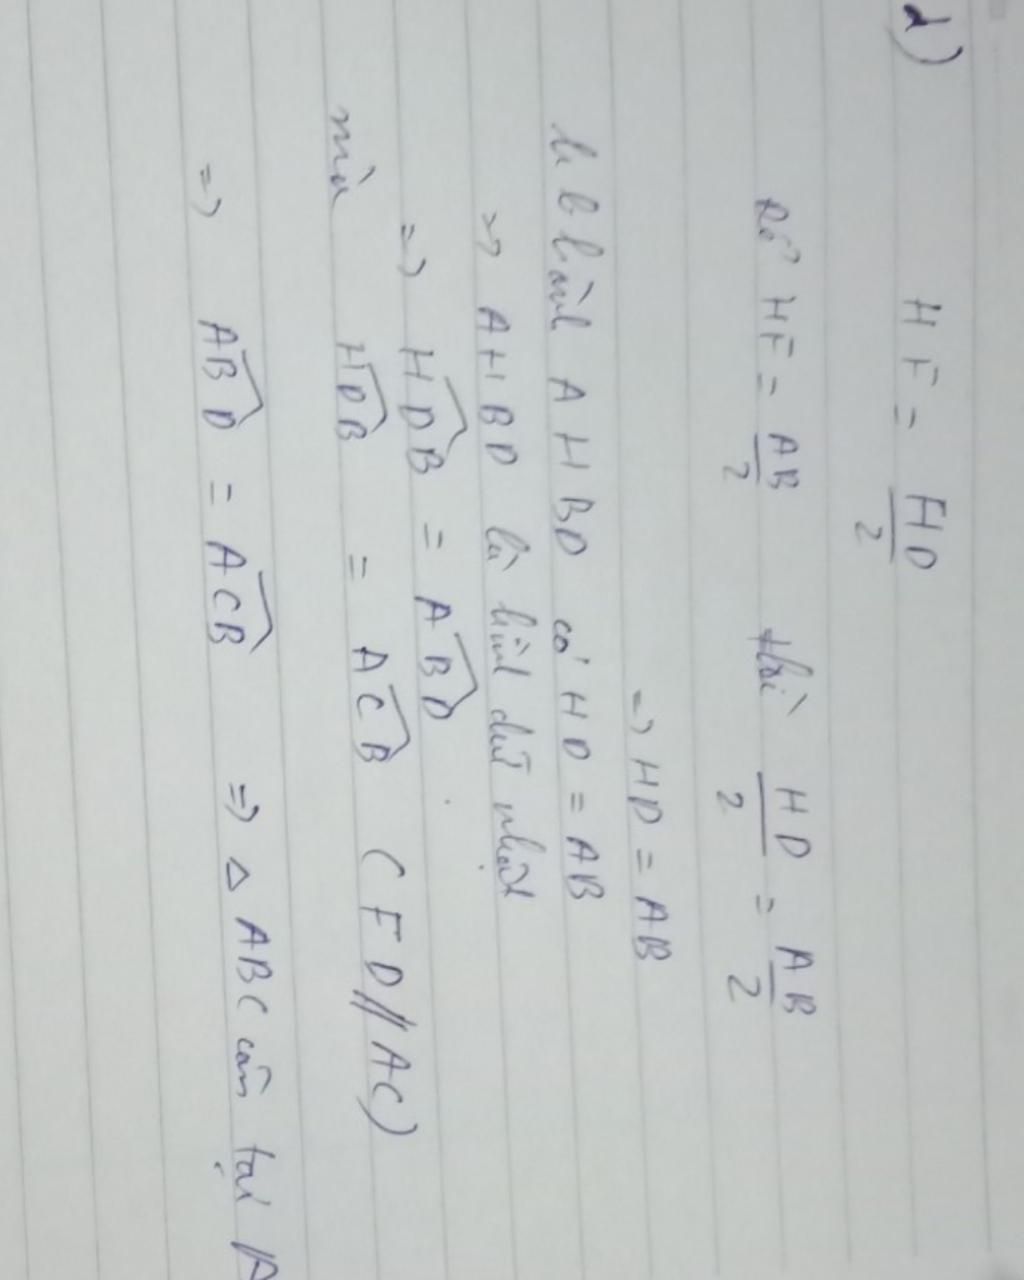 d) HF = HD/2
Để HF = AB/2 thì HD/2 = AB/2
=> HD = AB
hb hành AHBD có HD = AB
=> AHBD là hình chữ nhật
=> HDB = ABD
mà HDB = ACB (FD // AC)
=> ABD = ACB => △ ABC cân tại A